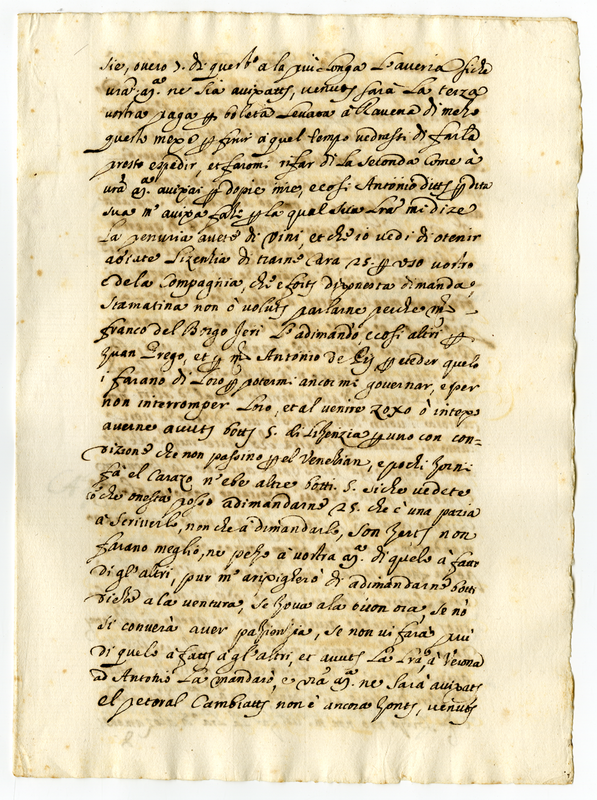 sie, overo 7. di questo a la più longa l'averia siche
vra. M. ne sia avixatto, venuto sarà la terza
vostra paga p boleta levata a Ravena di mezo
questo mexe p finir a quel tempo vedrassi di farla
presto espedir, et faromi rifar di la seconda come à
vra M. avixai p dopie mie, ecosi Antonio ditto p dita
sua m' avixa p la qual sua lra mi dize
la penuria avete di vini, et che io vedi di otenir
licenzia di traine Cara 25. p uso vostro
e de la Compagnia, che
Stamatina non ò voluto parlarne perche mr
franco del Borgo Jeri l'adimandò, ecosi altri p
Zuan Grego, et p mr Antonio de p veder quelo
i farano di loro p potermi ancor mi governar, e per
non interromper loro, et al venire zoxo ò intexo
averne avuto botti 5. di lizenzia p uno con con=
dizione che non passino p el Venezian, e pochi zorni
fà el Carazo n'ebe altre botti. 5. siche vedete
che onesta posso adimandarne 25. che è una pazia
a scriverlo, non che a dimandarlo, son zerto non
farano meglio, ne pezo à vostra M. di quelo à fato
di gl'altri, pur m' arisigherò di adimandarne botti
dieze a la ventura, se zova a la buon ora, se nò
si converà aver pazienzia, se non vi farà più
di quelo à fatto a gl'altri, et avuto la lra, à Verona
ad Antonio la mandarò, e vra M. ne sarà avixato
el petoral Cambiatto non è ancora zonto, venuto